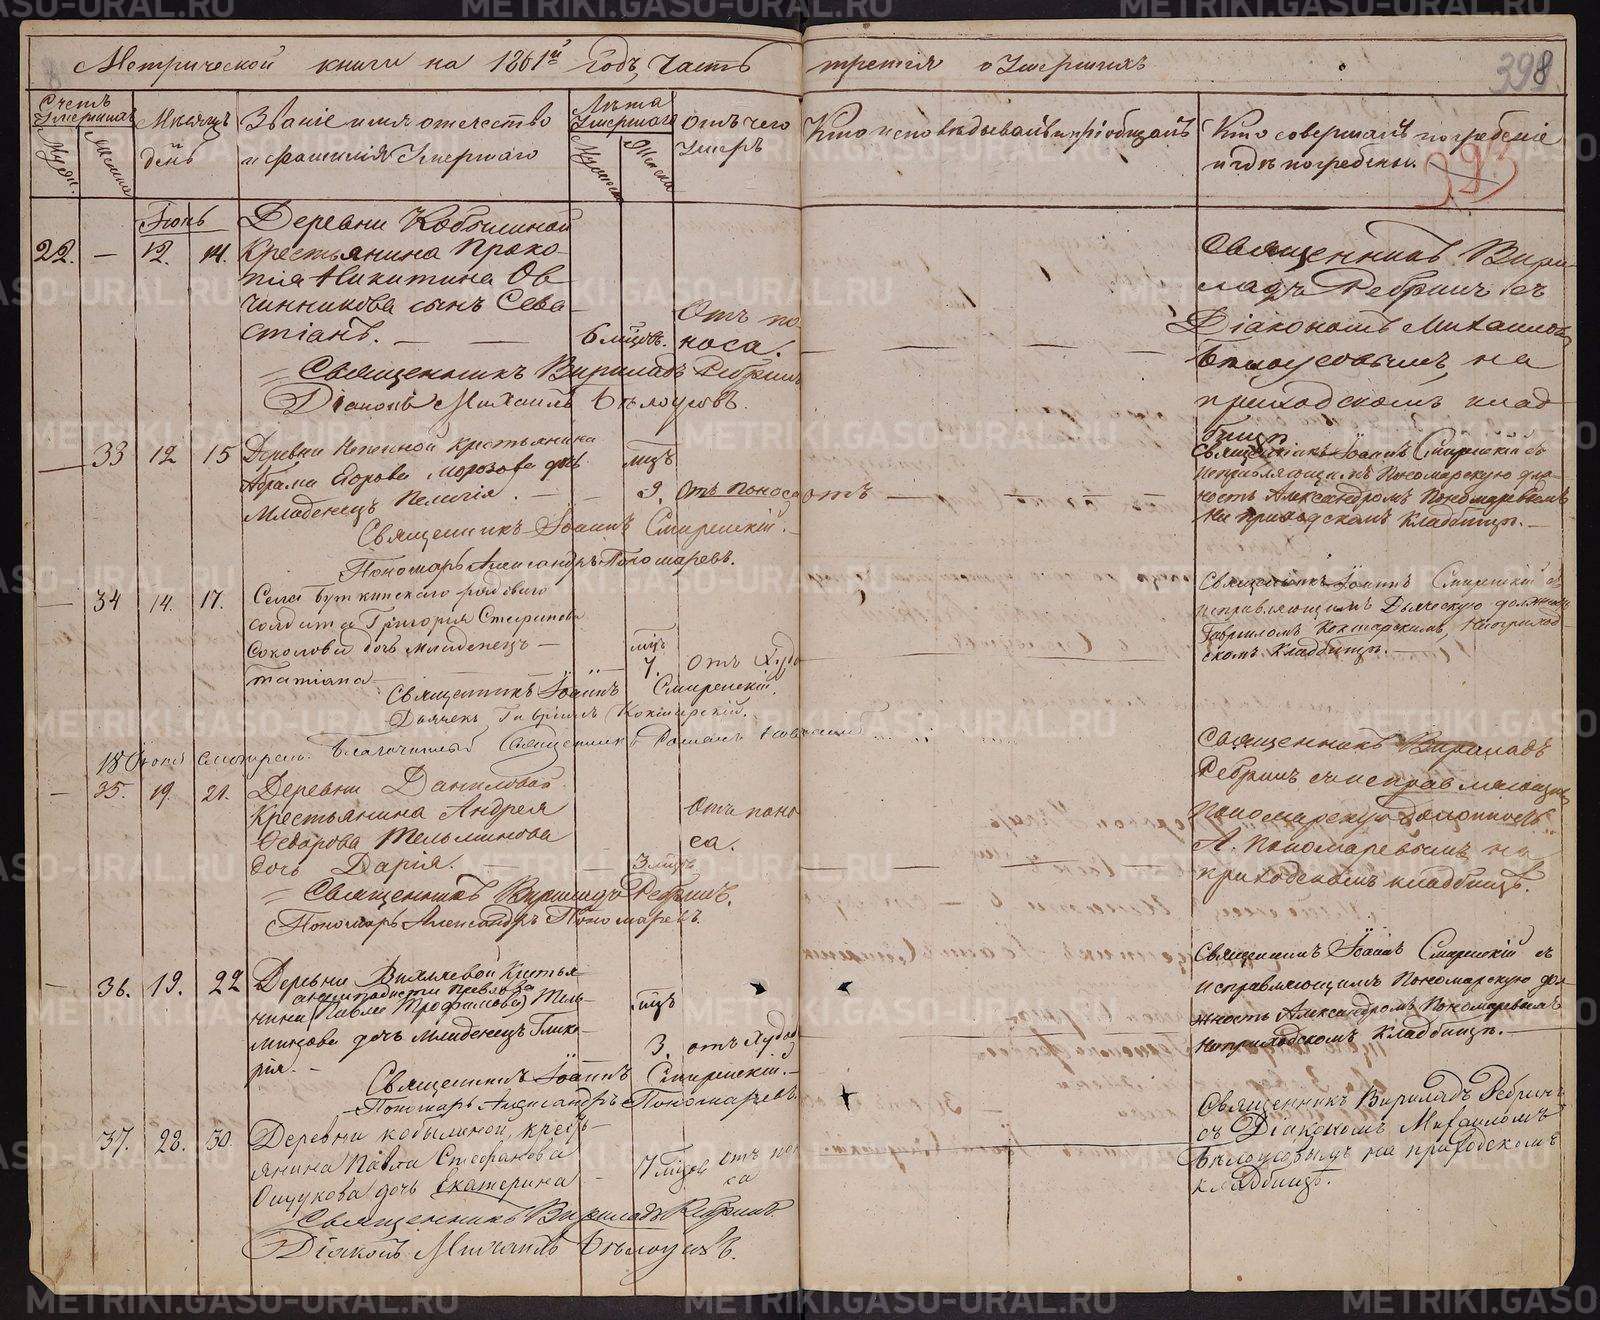 Метрической книги на 1861й годъ, Часть третія о Умершихъ
398
Счетъ Умершихъ
Мужи.
Женска
Мѣсяцъ и день
Званіе имя отечество
и фамилія Умершаго
Лѣта Умершаго
Мужеска
Женска
Отъ чего
Умеръ
Кто исповѣдывалъ и пріобщалъ
Кто совершалъ погребеніе
и гдѣ погребены.
393
Іюнь
Деревни Кобылиной
22. — 12. 14. Крестьянина Проко-
пія Никитина Ов-
чинникова сынъ Сева-
стіанъ. — — 6 мцовъ. Отъ по-
носа.
Священникъ Вириладъ Ребринъ
Діаконъ Михаилъ Бѣлоусовъ.
Священникъ Вири-
ладъ Ребринъ съ
Діакономъ Михаиломъ
Бѣлоусовымъ на
приходскомъ клад-
бищѣ
— 33 12 15 Деревни крестьянина
Абрама Егорова Морозова дчь
Младенецъ Пелагія. — мцъ
9. отъ поноса
Священникъ Іоаннъ Смиренскій.
Пономарь Александръ Пономаревъ.
Священникъ Іоаннъ Смиренскій съ
исправляющимъ Пономарскую дол-
ность Александромъ Пономаревымъ
на приходскомъ Кладбищѣ. —
— 34 14. 17. Села Буткинскаго рядоваго
солдата Григорія Стефанова
Соколова дочь младенецъ —
Татіана мцъ
7. отъ Худо
Священникъ Іоаннъ Смиренскій.
Дьячекъ Гавріилъ Кокшарскій.
Священникъ Іоаннъ Смиренскій съ
исправляющимъ Дьяческую должность
Гавриломъ Кокшарскимъ, на приход-
скомъ Кладбищѣ. —
18 Іюня смотрелъ Благочинный Священникъ Романъ
— 35. 19. 21. Деревни Даниловой
Крестьянина Андрея
Ѳедорова Тельминова
дочь Дарія. — 3 мцъ. Отъ поно
са.
Священникъ Вириладъ Ребринъ.
Пономарь Александръ Пономаревъ.
Священникъ Вириладъ
Ребринъ с исправляющимъ
Пономарскую должность
А. Пономаревымъ на
приходскомъ кладбищѣ.
— 36. 19. 22 Деревни Вихляевой Крстья-
нина (Павла Трофимова) Тель-
минова дочь младенецъ Глике-
рія. — мцъ
3. отъ Худо
Священникъ Іоаннъ Смиренскій. —
Пономарь Александръ Пономаревъ
Священникъ Іоаннъ Смиренскій съ
исправляющимъ Пономарскую дол-
жность Александромъ Пономаревымъ
На приходскомъ Кладбищѣ. —
37. 28. 30. Деревни кобылиной, кресть-
янина Павла Стефанова
Ощукова дочь Екатерина — 7 мцов отъ по
са
Священникъ Вириладъ Ребринъ.
Діаконъ Михаилъ Бѣлоусовъ.
Священникъ Вириладъ Ребринъ
съ Діакономъ Михаиломъ
Бѣлоусовымъ на приходскомъ
кладбищѣ.
METRIKI.GASO-URAL.RU